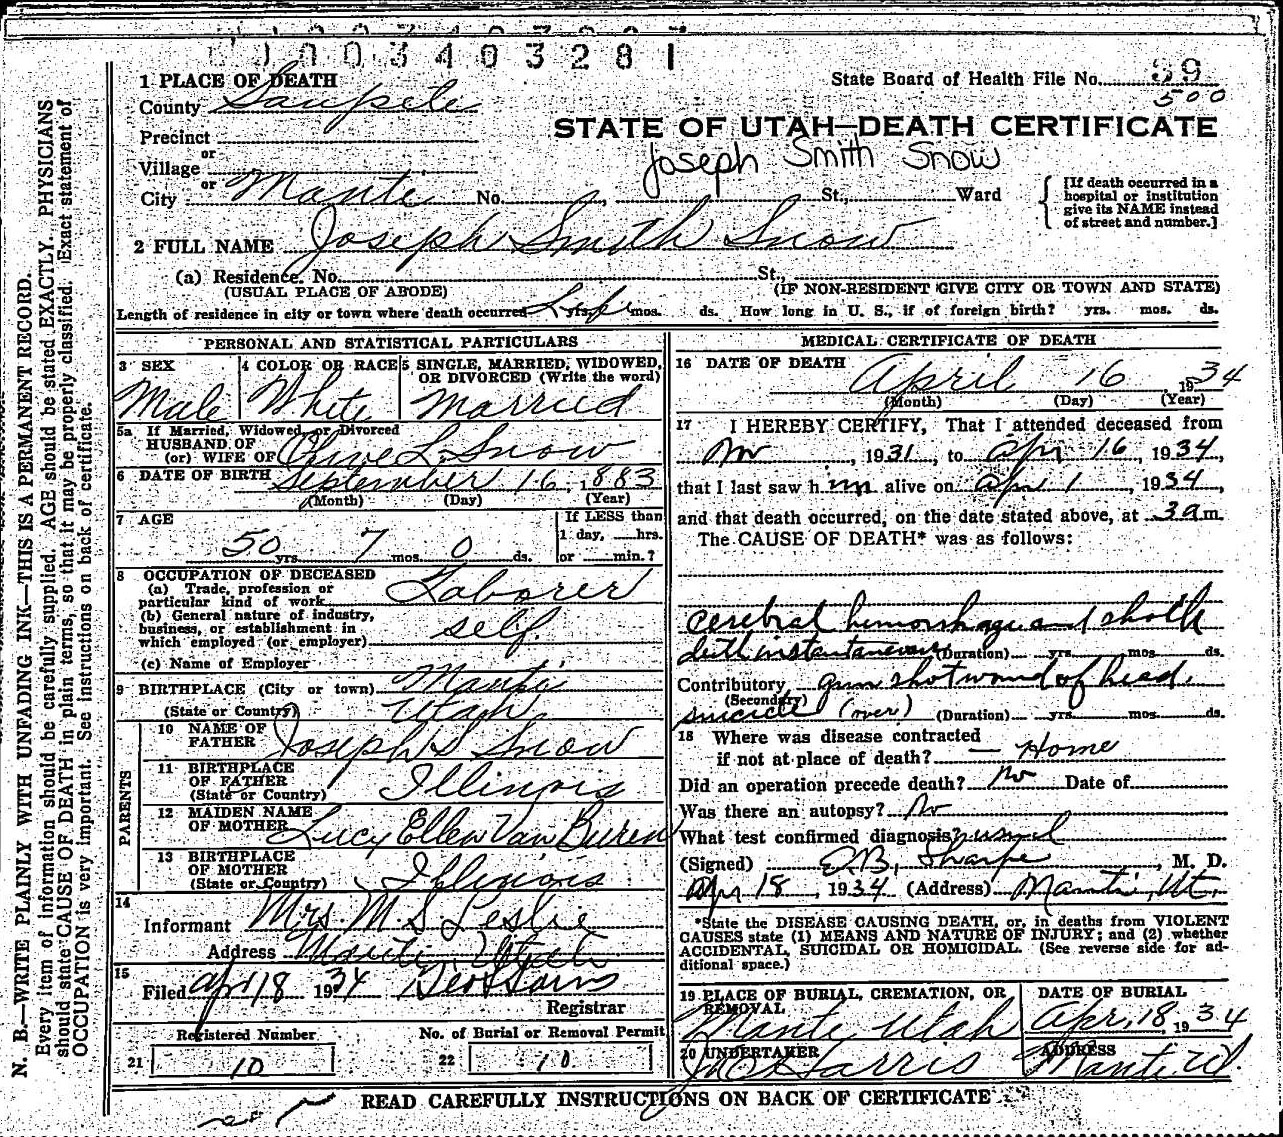 1003403281
1 PLACE OF DEATH
State Board of Health File No. 59
County Sanpete
500
Precinct
STATE OF UTAH—DEATH CERTIFICATE
or
Joseph Smith Snow
Village
or
City Manti No. St., Ward
[If death occurred in a
hospital or institution
give its NAME instead
of street and number.]
2 FULL NAME Joseph Smith Snow
(a) Residence. No. St.,
(USUAL PLACE OF ABODE) (IF NON-RESIDENT GIVE CITY OR TOWN AND STATE)
Length of residence in city or town where death occurred Life yrs. mos. ds. How long in U. S., if of foreign birth? yrs. mos. ds.
PERSONAL AND STATISTICAL PARTICULARS
3 SEX
Male
4 COLOR OR RACE
White
5 SINGLE, MARRIED, WIDOWED,
OR DIVORCED (Write the word)
Married
5a If Married, Widowed, or Divorced
HUSBAND OF
(or) WIFE OF Olive L. Snow
6 DATE OF BIRTH September 16, 1883
(Month) (Day) (Year)
7 AGE
50 yrs. 7 mos. 0 ds.
If LESS than
1 day, hrs.
or min.?
8 OCCUPATION OF DECEASED
(a) Trade, profession or
particular kind of work Laborer
(b) General nature of industry,
business, or establishment in
which employed (or employer) self.
(c) Name of Employer
9 BIRTHPLACE (City or town) Manti
(State or Country) Utah
PARENTS
10 NAME OF
FATHER Joseph S Snow
11 BIRTHPLACE
OF FATHER
(State or Country) Illinois
12 MAIDEN NAME
OF MOTHER Lucy Ellen Van Buren
13 BIRTHPLACE
OF MOTHER
(State or Country) Illinois
14
Informant Mrs. M S Leslie
Address Manti, Utah
15
Filed Apr 18 1934
Registrar
Registered Number
21 10
No. of Burial or Removal Permit
22 10
MEDICAL CERTIFICATE OF DEATH
16 DATE OF DEATH
April 16, 1934
(Month) (Day) (Year)
17 I HEREBY CERTIFY, That I attended deceased from
Nov, 1931, to Apr 16, 1934,
that I last saw him alive on Apr 1, 1934,
and that death occurred, on the date stated above, at 3 a m.
The CAUSE OF DEATH* was as follows:
cerebral hemorhage and shock
deth instantaneous (Duration) yrs. mos. ds.
Contributory gun shot wound of head,
(Secondary)
suicide (over) (Duration) yrs. mos. ds.
18 Where was disease contracted
if not at place of death? — Home
Did an operation precede death? No Date of
Was there an autopsy? No
What test confirmed diagnosis? usual
(Signed) E.B. Sharpe, M. D.
Apr 18, 1934 (Address) Manti, Ut.
*State the DISEASE CAUSING DEATH, or, in deaths from VIOLENT
CAUSES state (1) MEANS AND NATURE OF INJURY; and (2) whether
ACCIDENTAL, SUICIDAL OR HOMICIDAL. (See reverse side for ad-
ditional space.)
19 PLACE OF BURIAL, CREMATION, OR
REMOVAL
Manti Utah
DATE OF BURIAL
Apr, 18 1934
20 UNDERTAKER
Harris
ADDRESS
Manti Ut.
READ CAREFULLY INSTRUCTIONS ON BACK OF CERTIFICATE
N. B.—WRITE PLAINLY WITH UNFADING INK—THIS IS A PERMANENT RECORD.
Every item of information should be carefully supplied. AGE should be stated EXACTLY. PHYSICIANS
should state CAUSE OF DEATH in plain terms, so that it may be properly classified. Exact statement of
OCCUPATION is very important. See instructions on back of certificate.